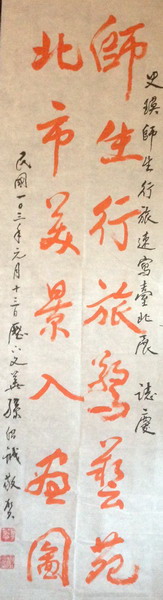 史瑛師生行旅速寫臺北展 誌慶
師生行旅驚藝苑
北市美景入畫圖
民國一〇三年元月十三日歷下文善孫紹誠敬賀